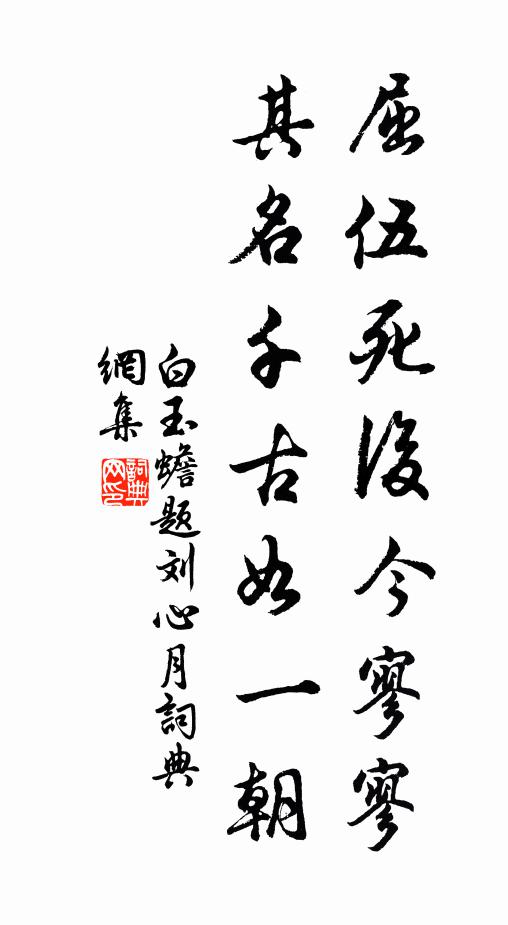 屈伍死後今寥寥
其名千古如一朝
白玉蟾题刘心月詞典
網集
詞典
网印